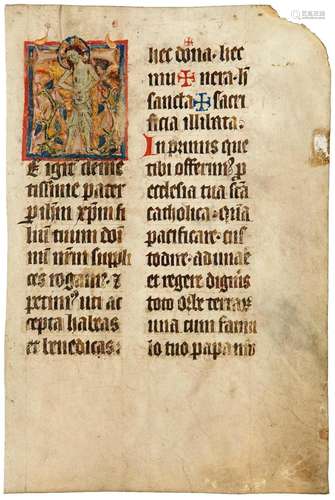 E igit͛ cleme
tissime pater
p ih̅m xp̅m fi
liu̅ tuum dom̅
nu̅m n̅rm suppli
ces rogam⁹. ⁊
petim⁹ uti ac
cepta habeas
et benedicas:
hec dona. hec
mu ✠ nera. h̅
sancta ✠ sacri
ficia illibata:
In primis que
tibi offerim⁹ p̱
ecclesia tua sc̅a
catholica. qua̅
pacificare. cus
todire. adunar̅
et regere digne̅s
toto orbe terrar̅
una cum famu
lo tuo papa nr̅o